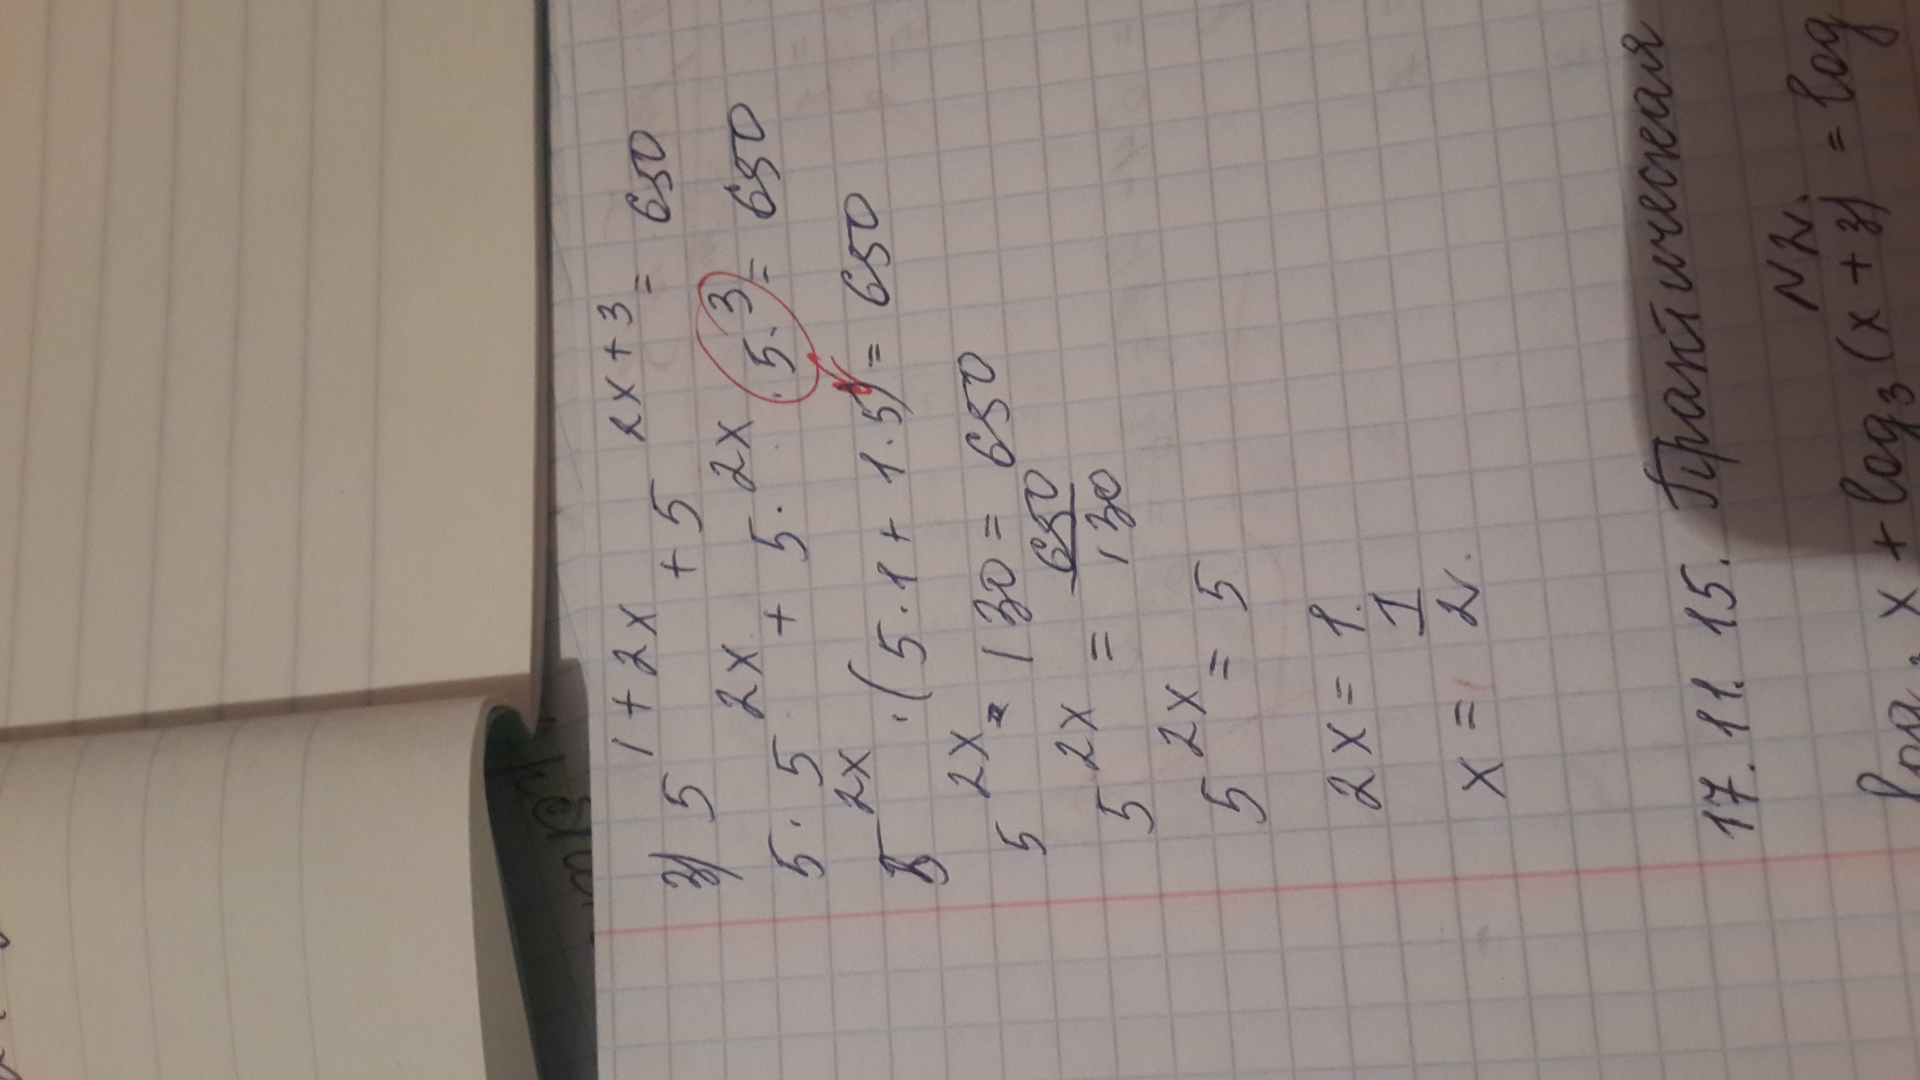 3) 5^(1+2x) + 5^(2x+3) = 650
5·5^(2x) + 5·^(2x)·5·^3 = 650
5^(2x)·(5·1+1·5) = 650
5^(2x)·130 = 650
5^(2x) = 650/130
5^(2x) = 5
2x = 1.
x = 1/2.
17.11.15. Практическая
N2.
x + log₃(x+3) = log